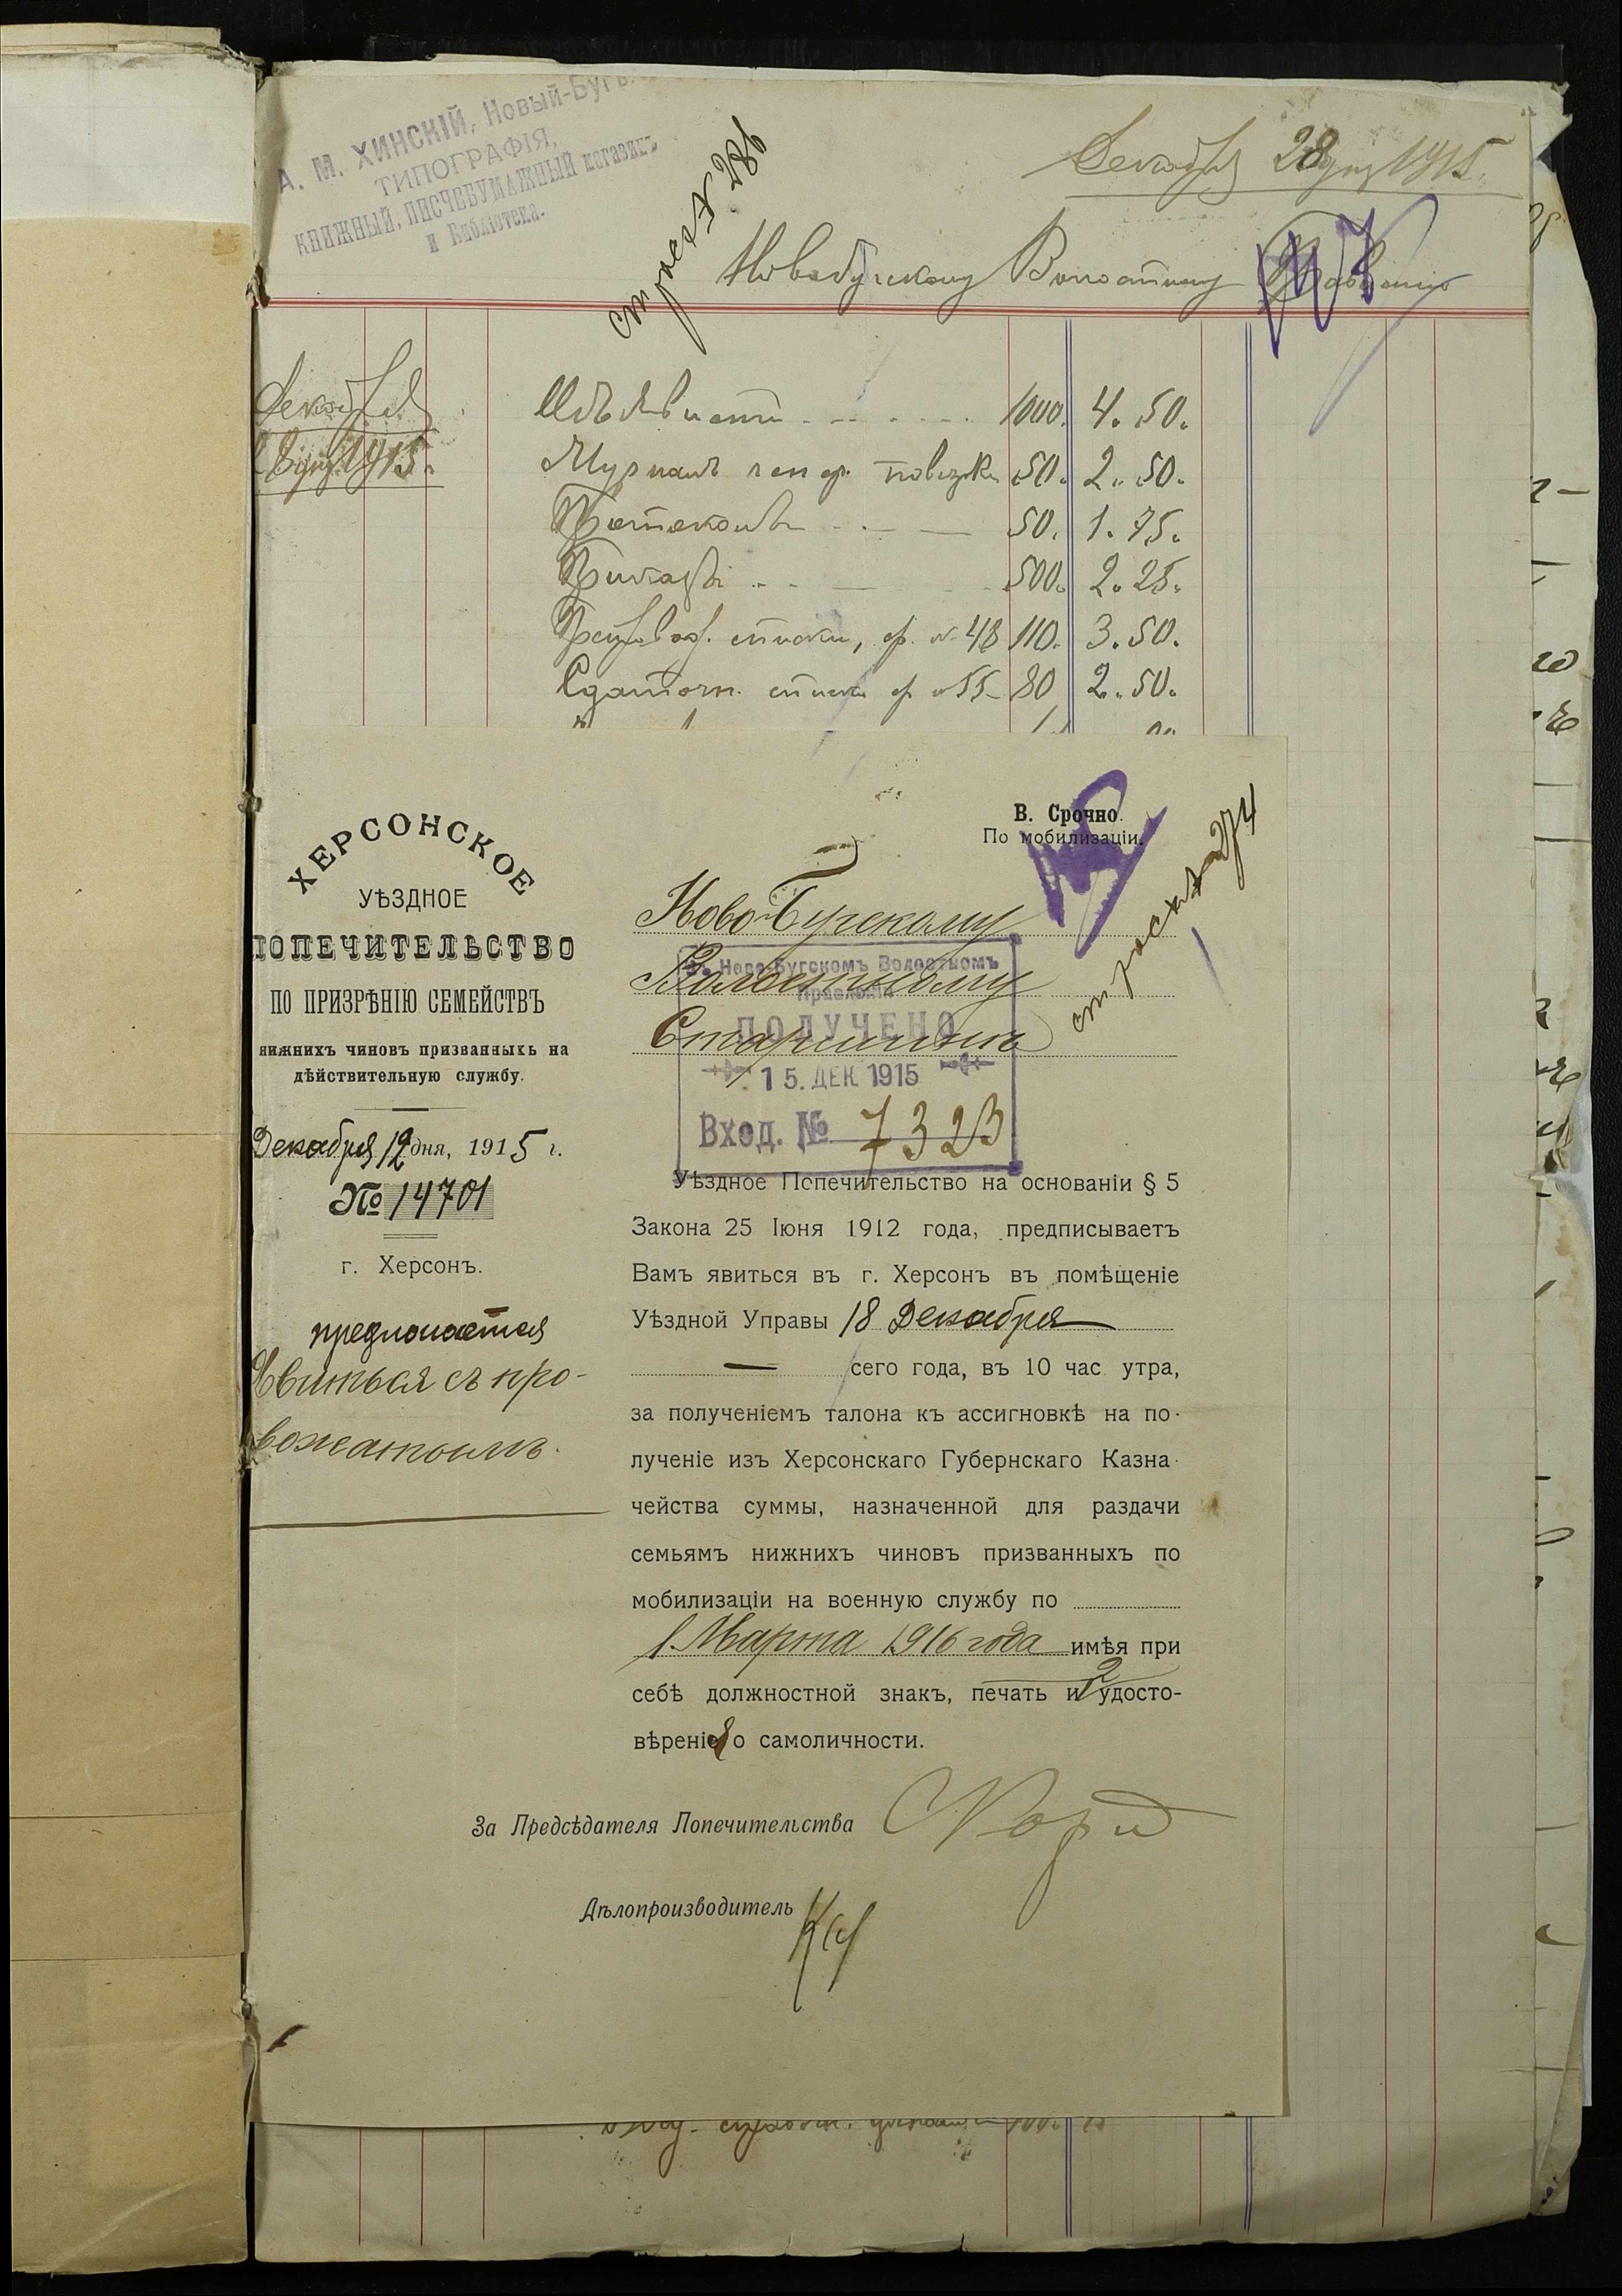 А. М. ХИНСКІЙ, Новый-Бугъ.
ТИПОГРАФІЯ,
КНИЖНЫЙ, ПИСЧЕБУМАЖНЫЙ магазинъ
и Библіотека.
Декабря 28 дня 1915.
Новобугскому Волостному Правленію
Декабря
1915.
1000. 4. 50.
50. 2. 50.
Протоколъ 50. 1. 75.
500. 2. 25.
списки, ф. № 48 110. 3. 50.
Сдаточн. списки ф № 55 80 2. 50.
В. Срочно.
По мобилизаціи.
ХЕРСОНСКОЕ
УѢЗДНОЕ
ПОПЕЧИТЕЛЬСТВО
ПО ПРИЗРѢНІЮ СЕМЕЙСТВЪ
нижнихъ чиновъ призванныхъ на
дѣйствительную службу.
Декабря 12 дня, 1915 г.
№ 14701
г. Херсонъ.
предлагается
Явиться съ про-
вожатымъ.
Ново-Бугскому
Волостному
Старшинѣ
Ново-Бугскомъ Волостномъ
Правленіи
ПОЛУЧЕНО
15. ДЕК. 1915
Вход. № 7323
Уѣздное Попечительство на основаніи § 5
Закона 25 Іюня 1912 года, предписываетъ
Вамъ явиться въ г. Херсонъ въ помѣщеніе
Уѣздной Управы 18 Декабря
— сего года, въ 10 час утра,
за полученіемъ талона къ ассигновкѣ на по-
лученіе изъ Херсонскаго Губернскаго Казна-
чейства суммы, назначенной для раздачи
семьямъ нижнихъ чиновъ призванныхъ по
мобилизаціи на военную службу по
1 Марта 1916 года имѣя при
себѣ должностной знакъ, печать и 2 удосто-
вѣренія о самоличности.
За Предсѣдателя Попечительства
Дѣлопроизводитель